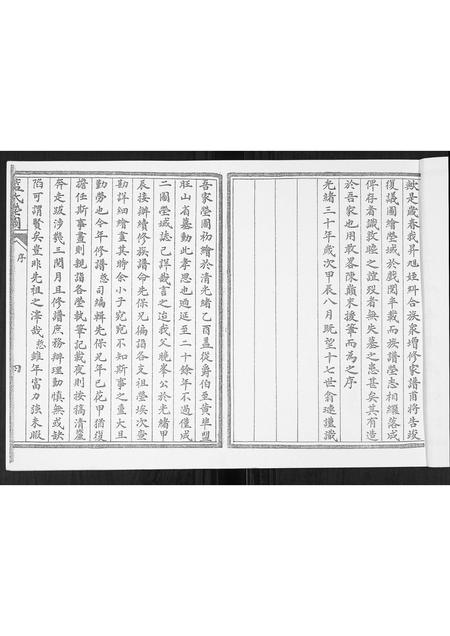 歟是歲春我昇旭姪糾合族衆增修家譜甫將告竣
復議圖繪塋域於戲閱半載而族譜塋志相繼落成
俾存者識敦睦之誼歿者無失墓之患甚矣其有造
於吾家也用敢畧陳巔末援筆而為之序
光緒三十年歲次甲辰八月既望十七世翁謹識
吾家塋圖初繪於清光緒乙酉盖從爵伯至黃埠盟
旺山省墓動此孝思也迺延至二十餘年不過僅成
二圖塋域誌已詳哉言之迨我父曉峯公於光緒甲
辰接辦續修族譜命先保兄徧詣各支祖塋埃次查
勘詳細繪畫其時余小子宛宛不知斯事之重大且
勤勞也今年修譜慤司編輯先保兄年已花甲猶復
擔任斯事晝則親詣各塋執筆記載夜則按稿清釐
奔走跋涉幾三閱月且修譜庶務辦理勤慎無或缺
陷可謂賢矣豈非先祖之澤哉慤雖年富力強未暇
氏塋圖
序
四